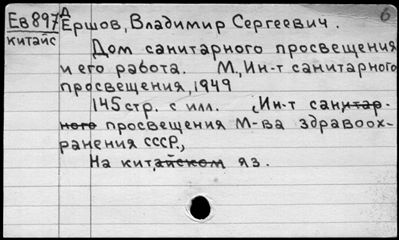 Ев897 Ершов, Владимир Сергеевич.
китайс
Дом санитарного просвещения
и его работа. М., Ин-т санитарного
просвещения, 1949
145 стр. с илл. (Ин-т санитар-
ного просвещения М-ва здравоох-
ранения СССР),
На китайском яз.
б